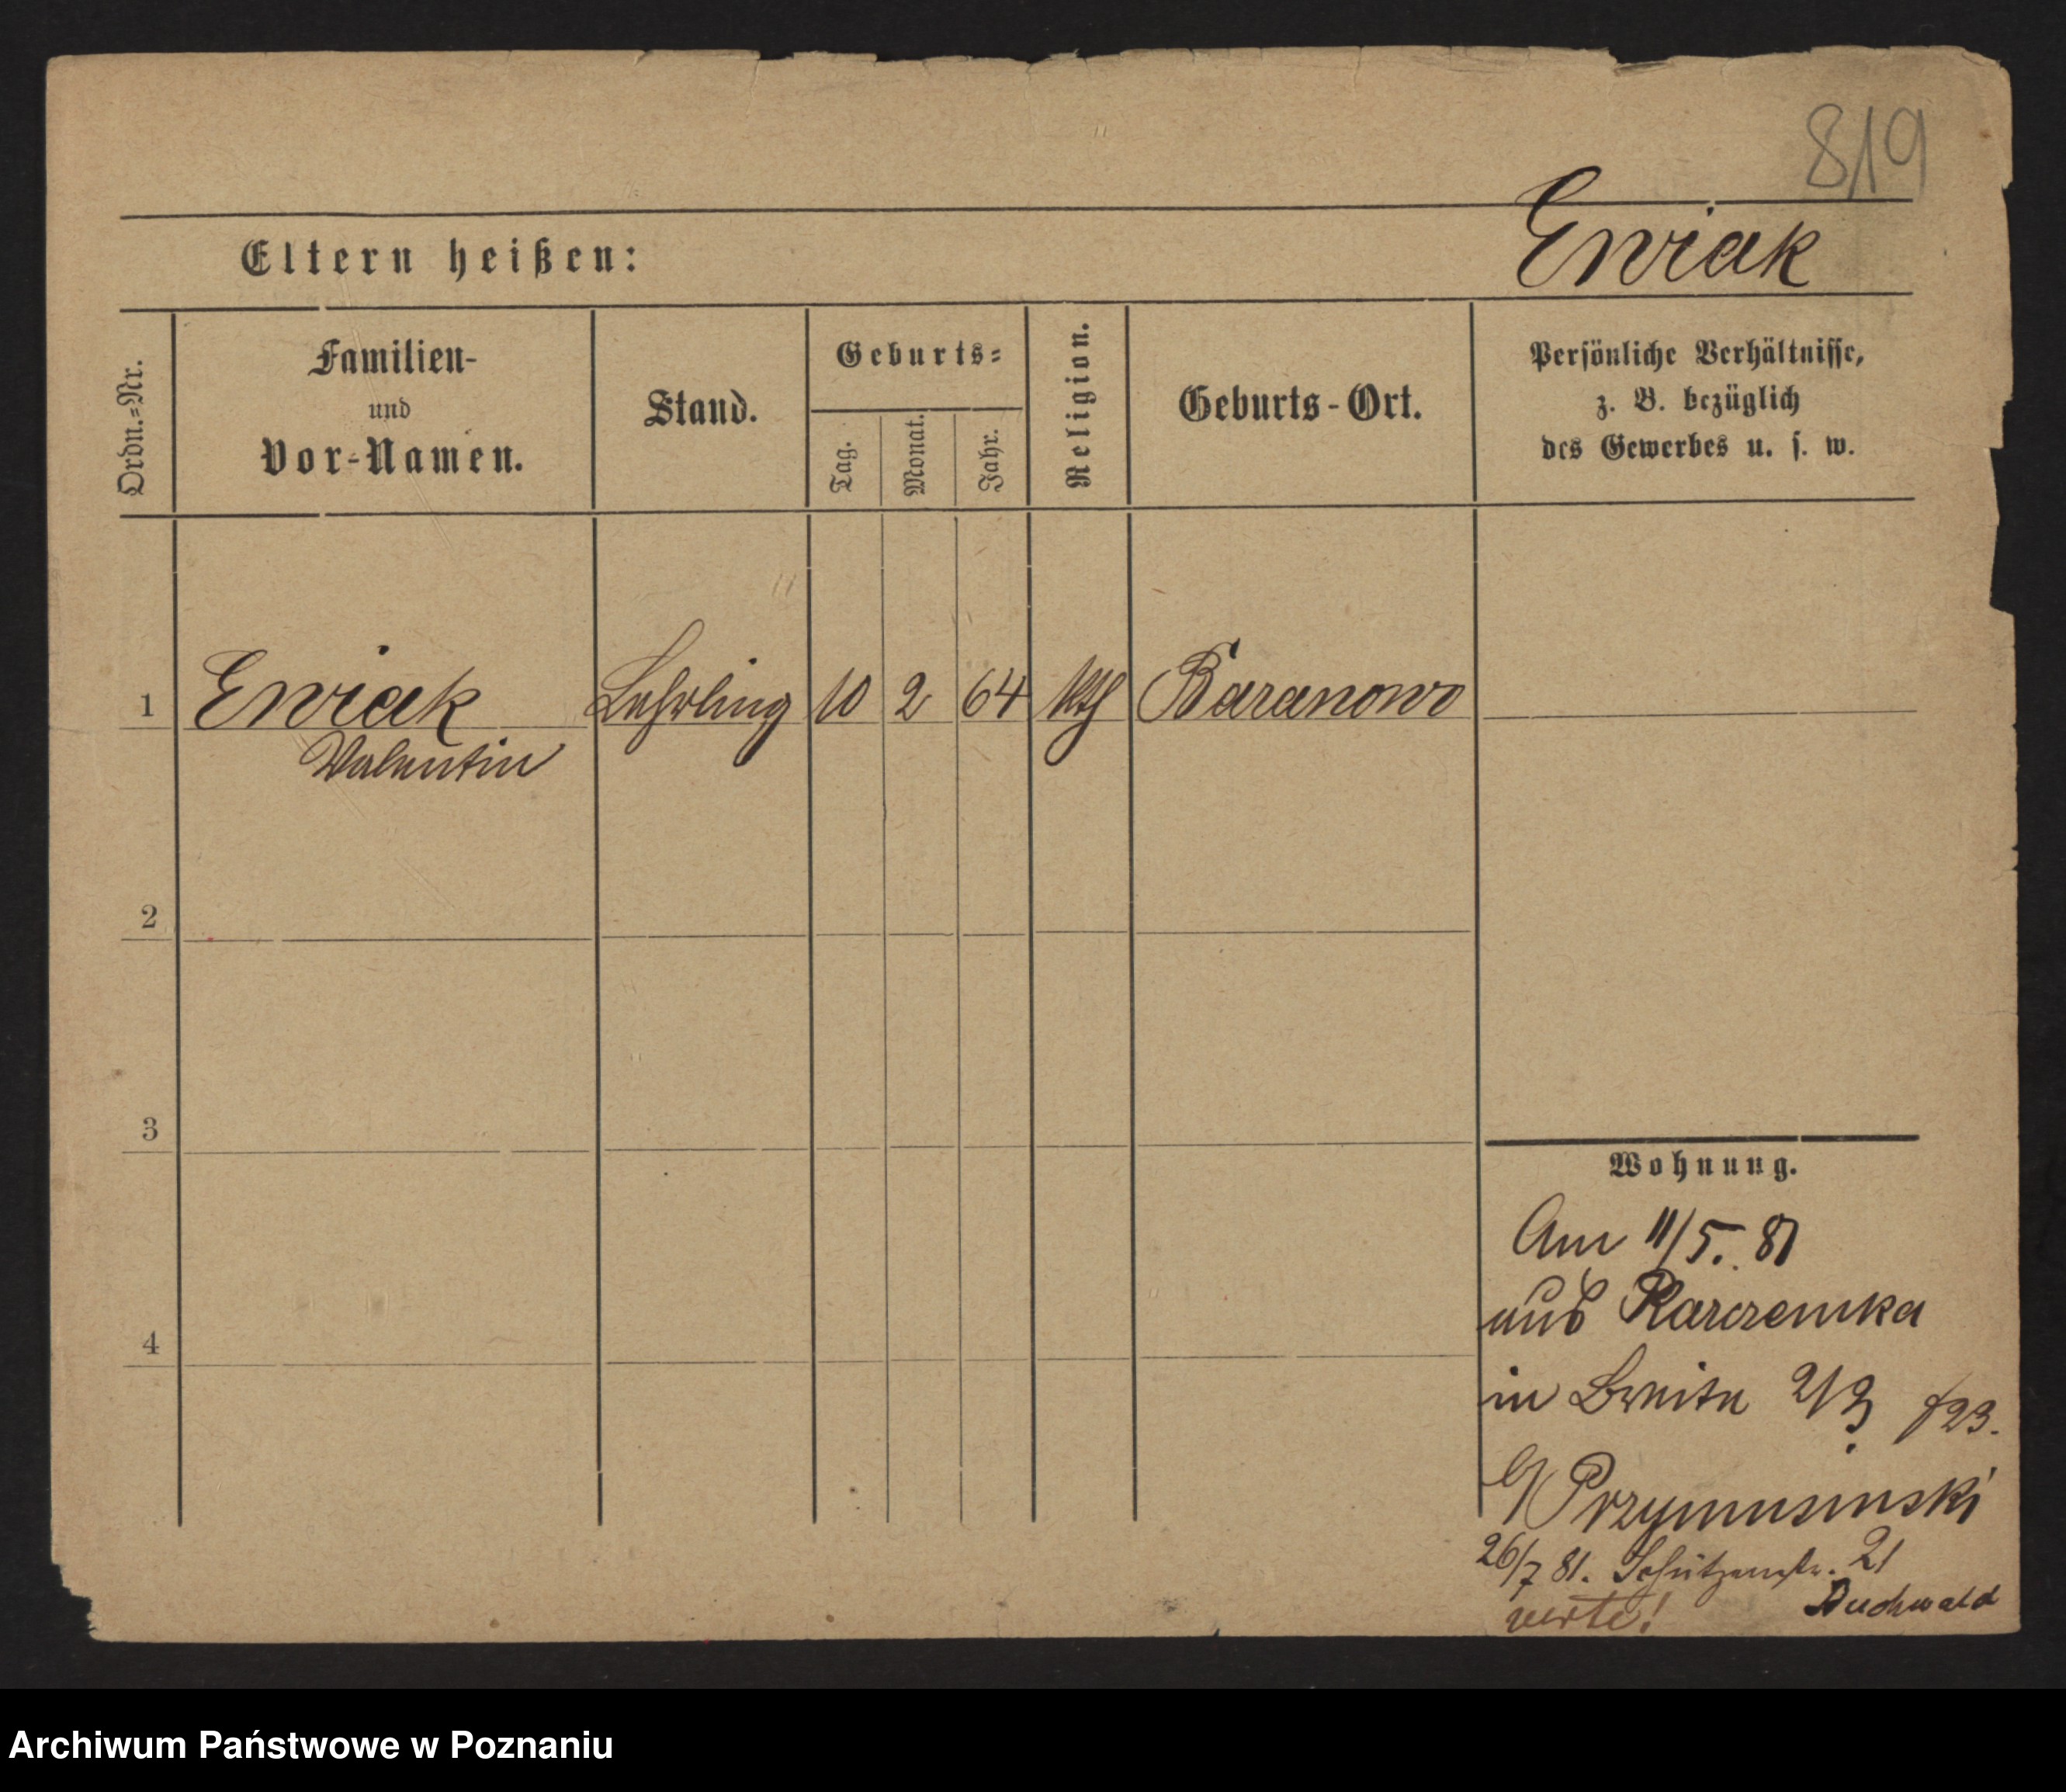 819
Eltern heißen:
Ewiak
Ordn.=Nr.
Familien-
und
Vor-Namen.
Stand.
Geburts=
Tag.
Monat.
Jahr.
Religion.
Geburts-Ort.
Persönliche Verhältnisse,
z. B. bezüglich
des Gewerbes u. s. w.
1 Ewiak Lehrling 10 2 64 kth Baranowo
Valentin
2
3
4
Wohnung.
Am 11/5. 81
aus Karczemka
in Breite
b/ Przymusinski
26/7 81. Schützenstr. 21
Buchwald
verte!
Archiwum Państwowe w Poznaniu